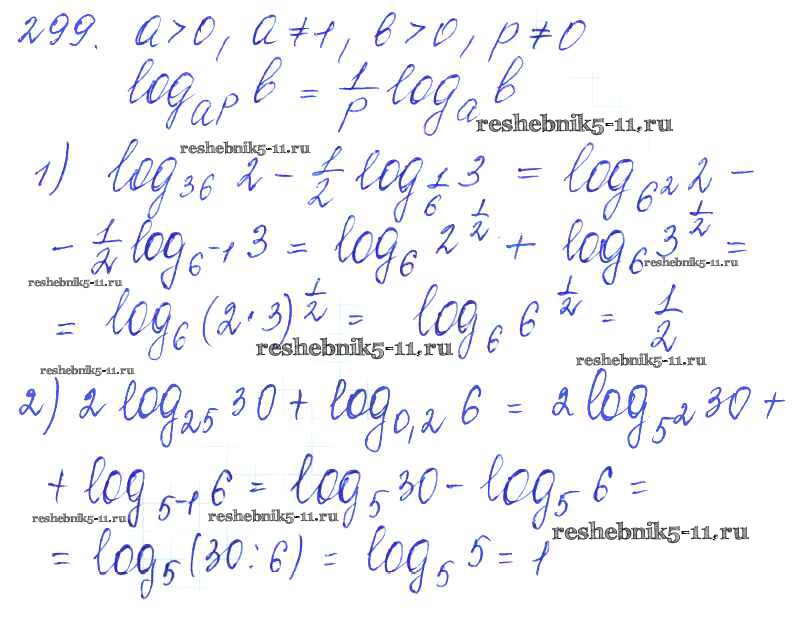 299. a>0, a≠1, b>0, p≠0
log_{a^p} b = 1/p log_a b
reshebnik5-11.ru
reshebnik5-11.ru
1) log_{36} 2 - 1/2 log_{1/6} 3 = log_{6^2} 2 -
- 1/2 log_{6^{-1}} 3 = log_6 2^{1/2} + log_6 3^{1/2} =
reshebnik5-11.ru
reshebnik5-11.ru
= log_6 (2·3)^{1/2} = log_6 6^{1/2} = 1/2
reshebnik5-11.ru
reshebnik5-11.ru
reshebnik5-11.ru
2) 2 log_{25} 30 + log_{0,2} 6 = 2 log_{5^2} 30 +
+ log_{5^{-1}} 6 = log_5 30 - log_5 6 =
reshebnik5-11.ru
reshebnik5-11.ru
reshebnik5-11.ru
= log_5 (30:6) = log_5 5 = 1